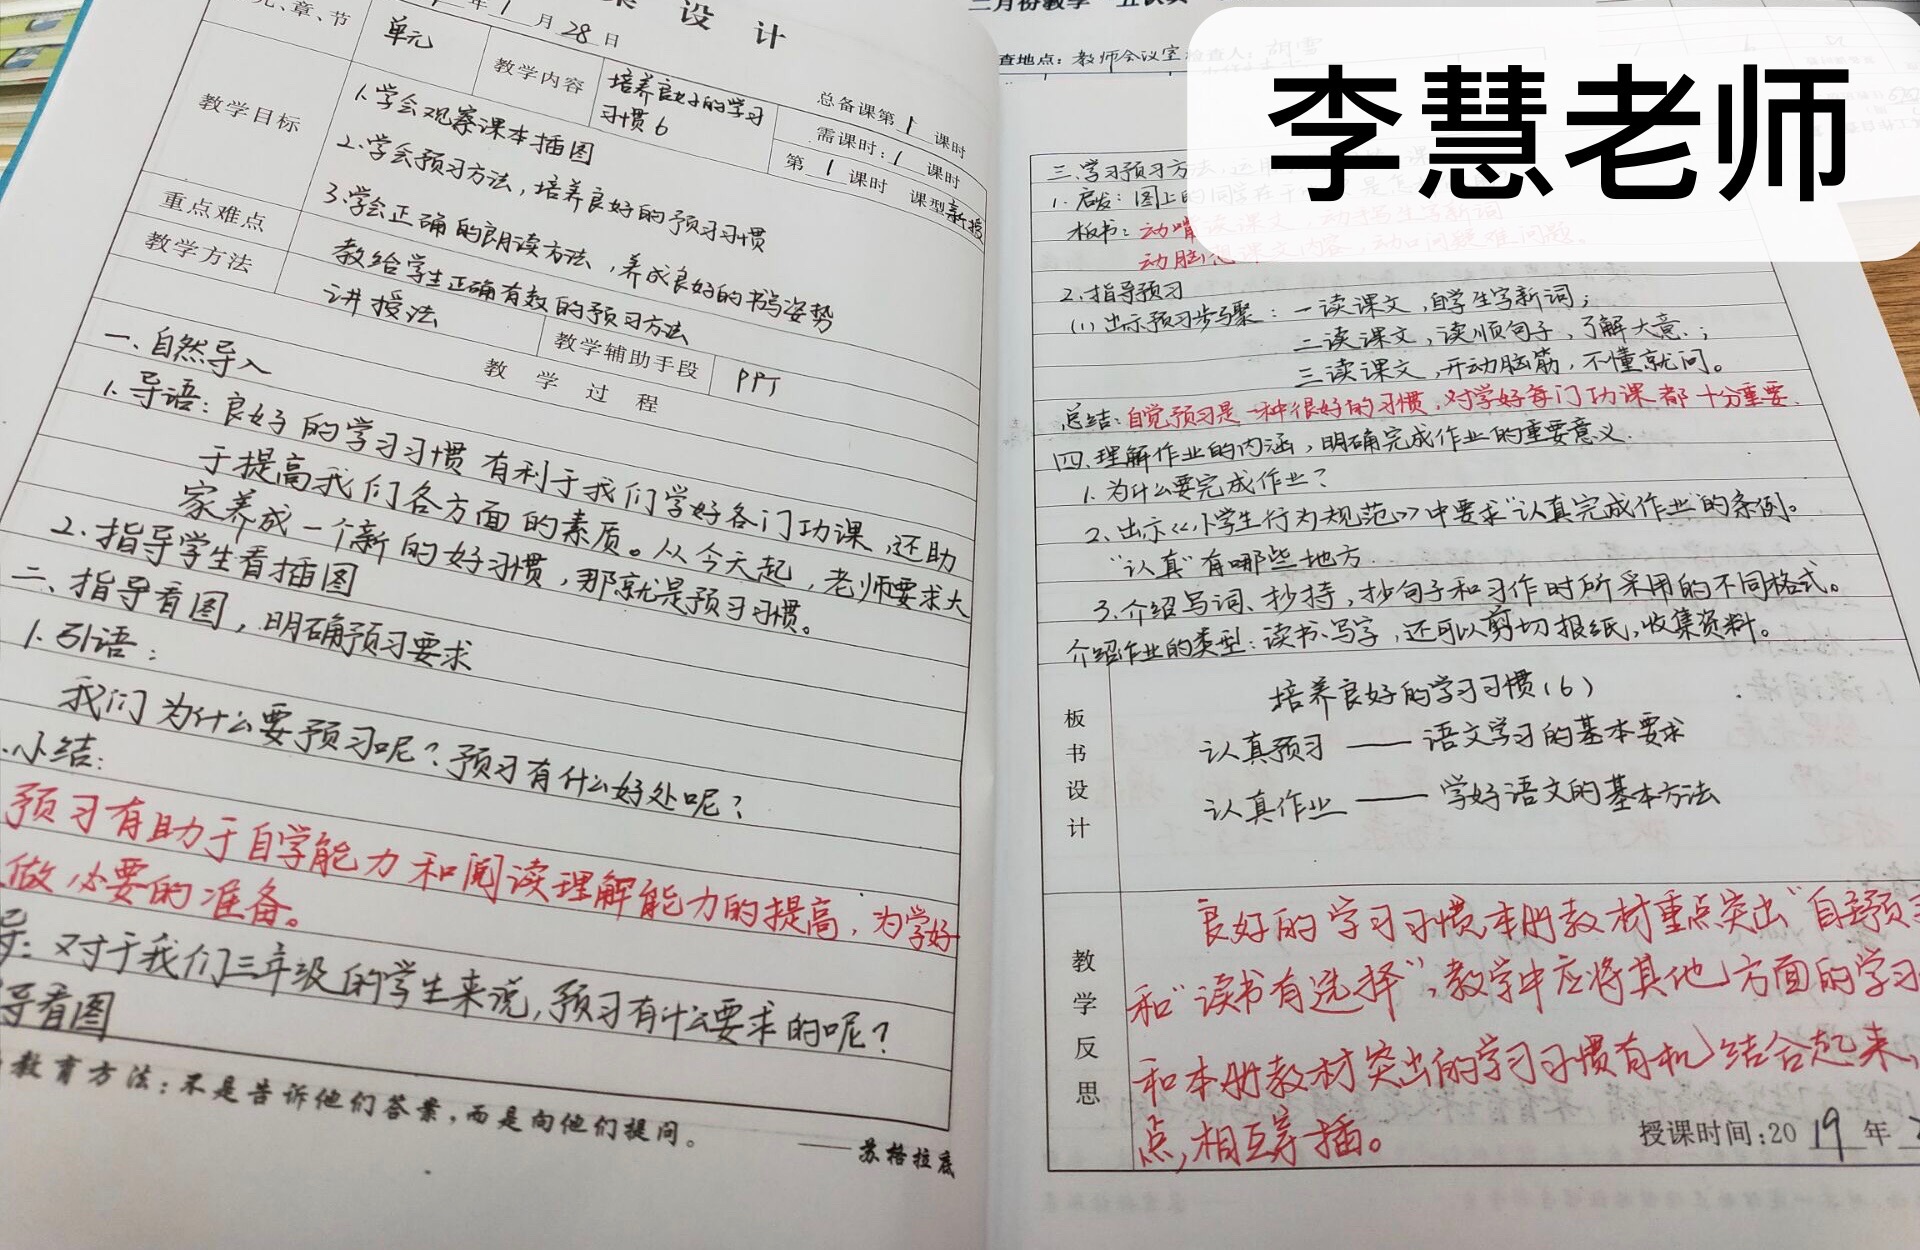 设 计
年 1 月 28 日
元、章、节
单元
教学内容
培养良好的学习
习惯6
总备课第 1 课时
需课时：1 课时
第 1 课时 课型新授
教学目标
1.学会观察课本插图
2.学会预习方法，培养良好的预习习惯
3.学会正确的朗读方法，养成良好的书写姿势
重点难点
教给学生正确有效的预习方法
教学方法
讲授法
教学辅助手段
PPT
教 学 过 程
一、自然导入
1.导语：良好的学习习惯有利于我们学好各门功课，还助
于提高我们各方面的素质。从今天起，老师要求大
家养成一个新的好习惯，那就是预习习惯。
2.指导学生看插图
二、指导看图，明确预习要求
1.引语：
我们为什么要预习呢？预习有什么好处呢？
小结：
预习有助于自学能力和阅读理解能力的提高，为学好
做必要的准备。
导：对于我们三年级的学生来说，预习有什么要求的呢？
导看图
教育方法：不是告诉他们答案，而是向他们提问。
——苏格拉底
三月份教学
查地点：教师会议室 检查人：胡雪
李慧老师
三.学习预习方法，
1.启发：图上的同学在
板书：动嘴读课文，动手写生字新词
动脑想课文内容，动口问疑难问题。
2.指导预习
(1)出示预习步骤：一读课文，自学生字新词；
二读课文，读顺句子，了解大意；
三读课文，开动脑筋，不懂就问。
总结：自觉预习是一种很好的习惯，对学好每门功课都十分重要.
四.理解作业的内涵，明确完成作业的重要意义.
1.为什么要完成作业？
2.出示《小学生行为规范》中要求“认真完成作业”的条例。
“认真”有哪些地方.
3.介绍写词、抄持，抄句子和习作时所采用的不同格式。
介绍作业的类型：读书、写字，还可以剪切报纸，收集资料。
板书设计
培养良好的学习习惯(6)
认真预习 —— 语文学习的基本要求
认真作业 —— 学好语文的基本方法
教学反思
良好的学习习惯，本册教材重点突出“自主预习
和“读书有选择”，教学中应将其他方面的学习
和本册教材突出的学习习惯有机结合起来，
点，相互穿插。
授课时间：2019年